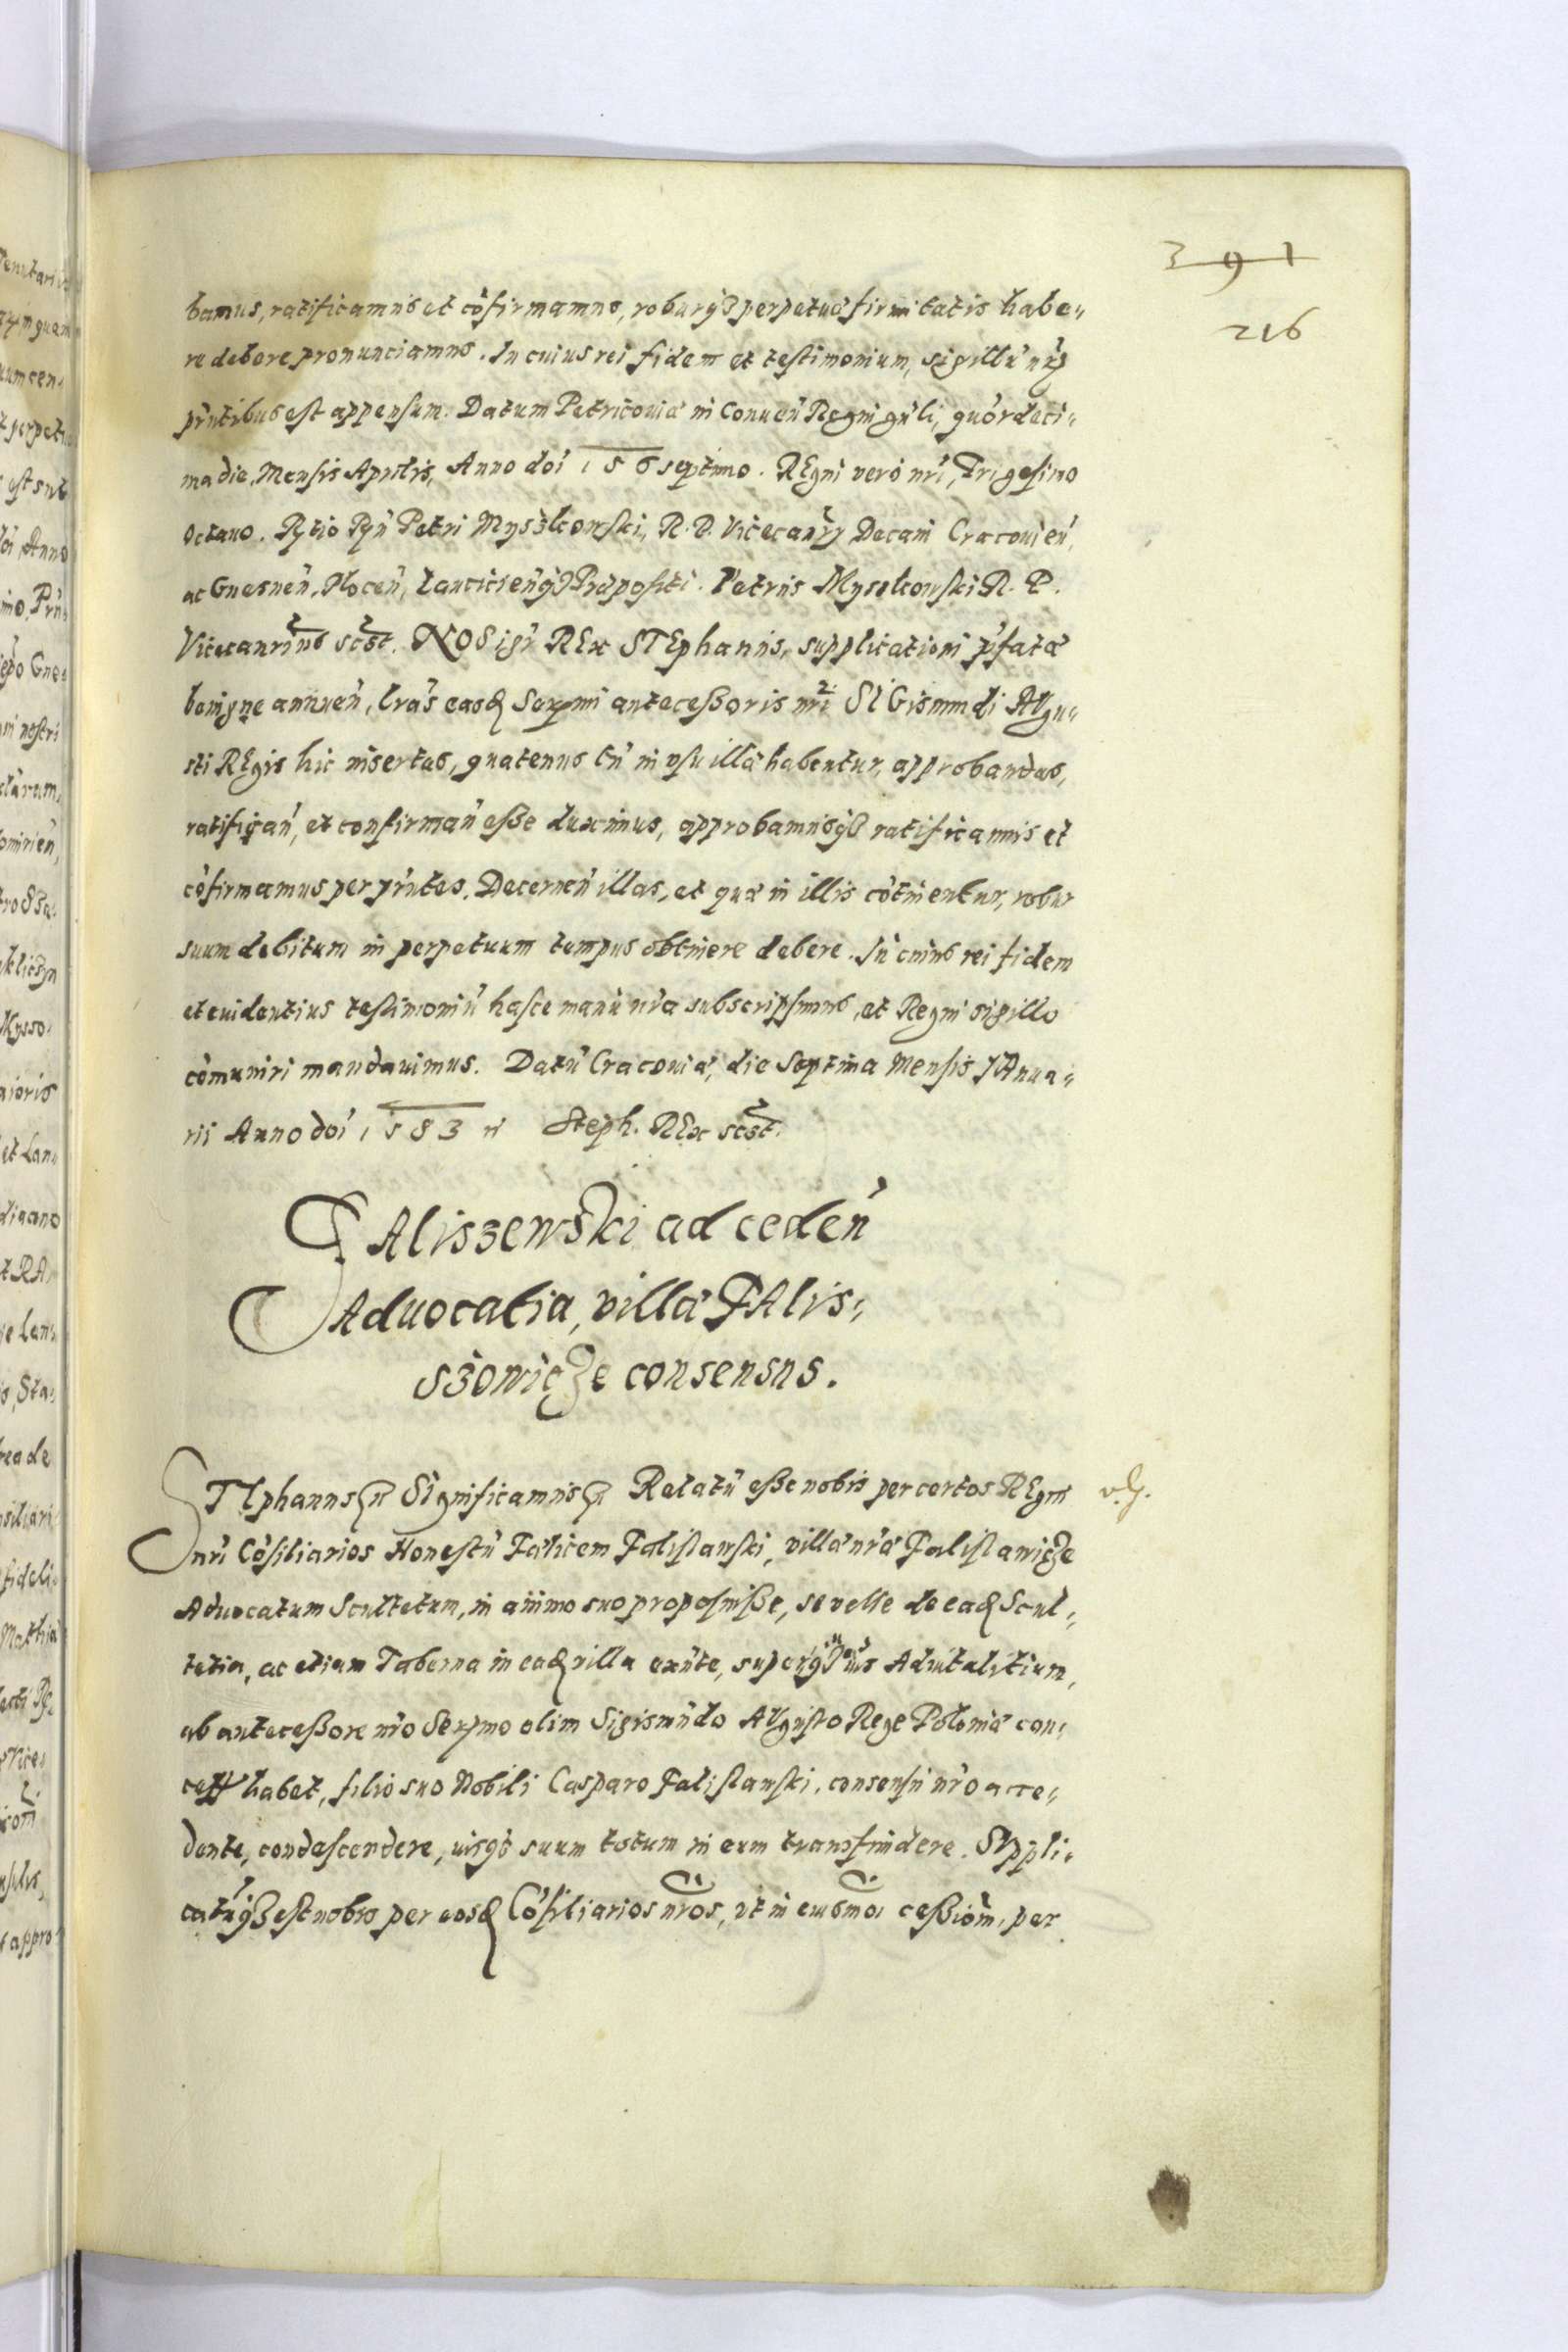 391
216
bamus, ratificamus et cōfirmamus, roburq₃ perpetuæ firmitatis habe„
re debere pronunciamus. In cuius rei fidem et testimonium, sigillū nr̄m
pn̄tibus est appensum. Datum Petricoviæ in Conuen̄ Regni gn̄li, quārdeci„
ma die, Mensis Aprilis, Anno dni̅ 156 septimo. REgni vero nr̄i, Trigesimo
Octauo. Rl̄tio Rn̄ Petri Myszkowski, R. P. Vicecanr̄ij Decani Cracouien̄,
ac Gnesnen̄, Plocen̄, Lanciciēnq₃ Præpositi. Petrus Myszkowski R. P.
Vicecanr̄ius sc̄st. NOS igr̄ REx STEphanus, supplicationi p̄fatæ
benigne annuen̄, lr̄as easd Serm̄i antecessoris nr̄i SIGismundi AVgu„
sti REgis hic insertas, quatenus tn̄ in vsu illæ habentur, approbandas,
ratifican̄, et confirman̄ esse duximus, approbamusq₃ ratificamus et
cōfirmamus per pn̄tes. Decernen̄ illas, et quæ in illis cōtinentur, robur
suum debitum in perpetuum tempus obtinere debere. In cuius rei fidem
et euidentius testimoniū hasce manu nr̄a subscripsimus, et Regni sigillo
cōmuniri mandauimus. Datū Cracouiæ, die Septima Mensis JAnua„
rii Anno dni̅ 1583 Steph. REx sc̄st.
FAliszewski ad ceden̄
Aduocatia, villæ FAlis„
szowicze consensus.
STEphanus Significamus Relatū esse nobis per certos REgni
nr̄i Cōsiliarios Honestū Fælicem Falislawski, villæ nr̄æ Falislawicze
Aduocatum Scultetum, in animo suo proposuisse, se velle de ead Scul„
tetia, ac etiam Taberna in ead villa exn̄te, superq₃ ius Aduitalitium,
ab antecessore nr̄o Serm̄o olim Sigismūdo AVgusto Rege Poloniæ con„
cessum habet, filio suo Nobili Casparo Falislawski, consensu nr̄o acce„
dente, condescendere, iusq₃ suum totum in eum transfundere. SVppli„
catūq₃ est nobis per eosd Cōsiliarios nr̄os, vt in eiusmōi cessiōm, per